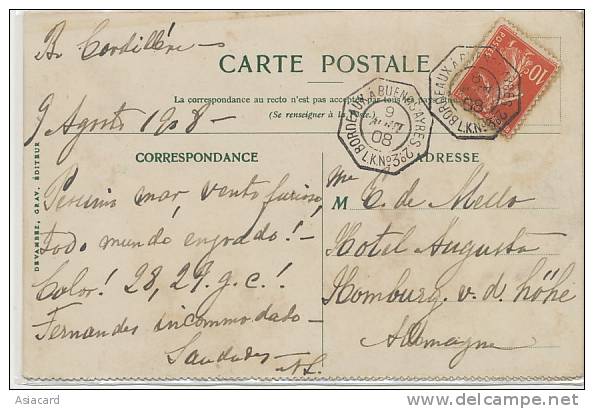 Br Cordillère —
CARTE POSTALE
La correspondance au recto n'est pas acceptée par tous les pays
(Se renseigner à la Poste.)
9 Agosto 1908 —
BORDEAUX A BUENOS-AYRES
9
AOUT
08
L.K. No 3
BORDEAUX A
08
L.K. No 3
POSTES
10
CORRESPONDANCE
ADRESSE
DEVAMBEZ, GRAV. ÉDITEUR
Pessimo mar, vento furioso,
Todo mundo enjoado! —
Calor! 28, 29. g. c.!
Fernandes incommodado —
Saudades —
Mme
M C. de Mello
Hotel Augusta
Homburg. v. d. höhe
Allemagne
Asiacard
delcampe.net